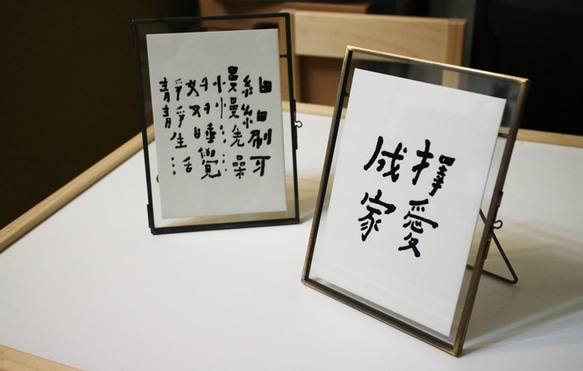 細細刷牙
慢慢洗澡
好好睡覺
靜靜生活
擇愛
成家